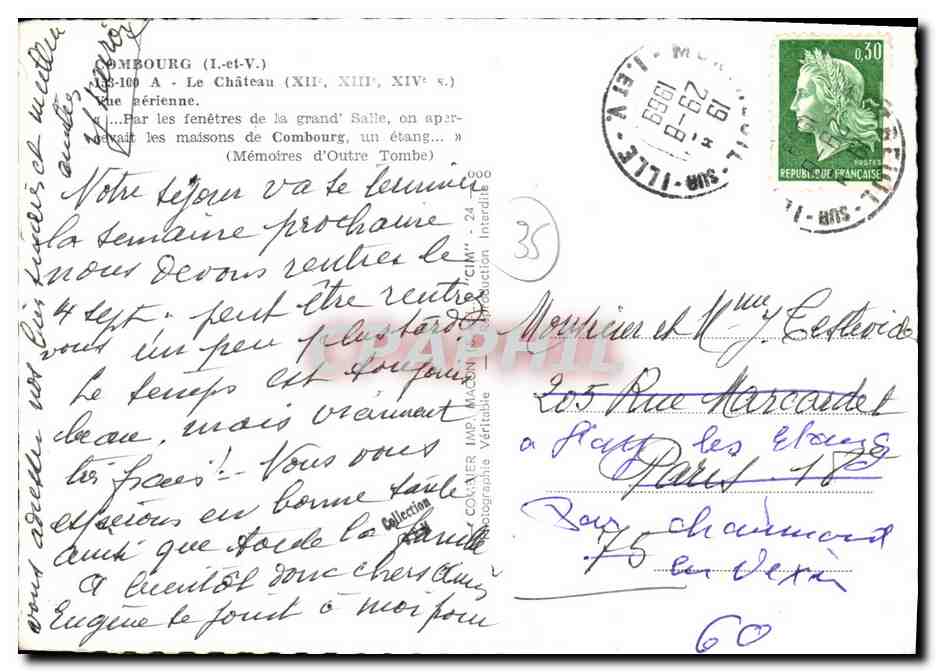 COMBOURG (I.-et-V.)
133-100 A - Le Château (XIIe, XIIIe, XIVe s.)
Vue aérienne.
« ...Par les fenêtres de la grand' Salle, on aper-
cevait les maisons de Combourg, un étang... »
(Mémoires d'Outre Tombe)
Notre séjour va se terminer
la semaine prochaine
nous devons rentrer le
4 sept - peut être rentrez
vous un peu plus tard?
Le temps est toujours
beau, mais vraiment
très frais! - Nous vous
espérons en bonne santé
ainsi que toute la famille
A bientôt donc chers amis
Eugène se joint à moi pour
vous adresser nos bien sincères et meilleures
amitiés
COMBIER IMP. MACON "CIM" - 24 -
Photographie Véritable - Reproduction Interdite
000
35
SUR-ILLE - I. ET V.
19 H
29-8
1969
0,30
POSTES
REPUBLIQUE FRANÇAISE
SUR-IL
Monsieur et Mme J. Testevide
205 Rue Marcadet
à les Etangs
Paris 18e
Par chaumont
75
en Vexin
60
Collection
CPAPHIL